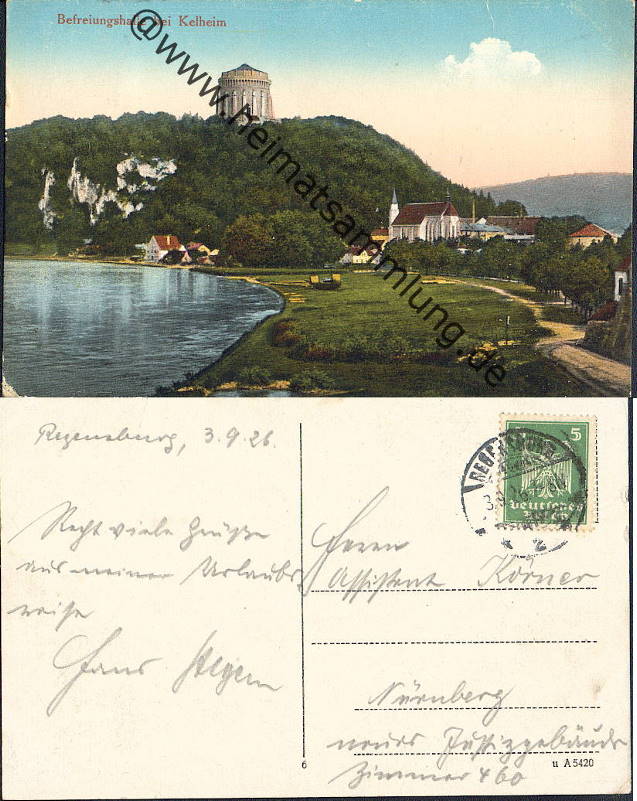 Befreiungshalle bei Kelheim
@www.heimatsammlung.de
Regensburg, 3.9.26.
5
REGENSBURG
Deutsches
Reich
Recht viele Grüße
aus meiner Urlaubs
reise
Hans
Herrn
Assistent Körner
Nürnberg
neues Justizgebäude
Zimmer 460
6
u A 5420